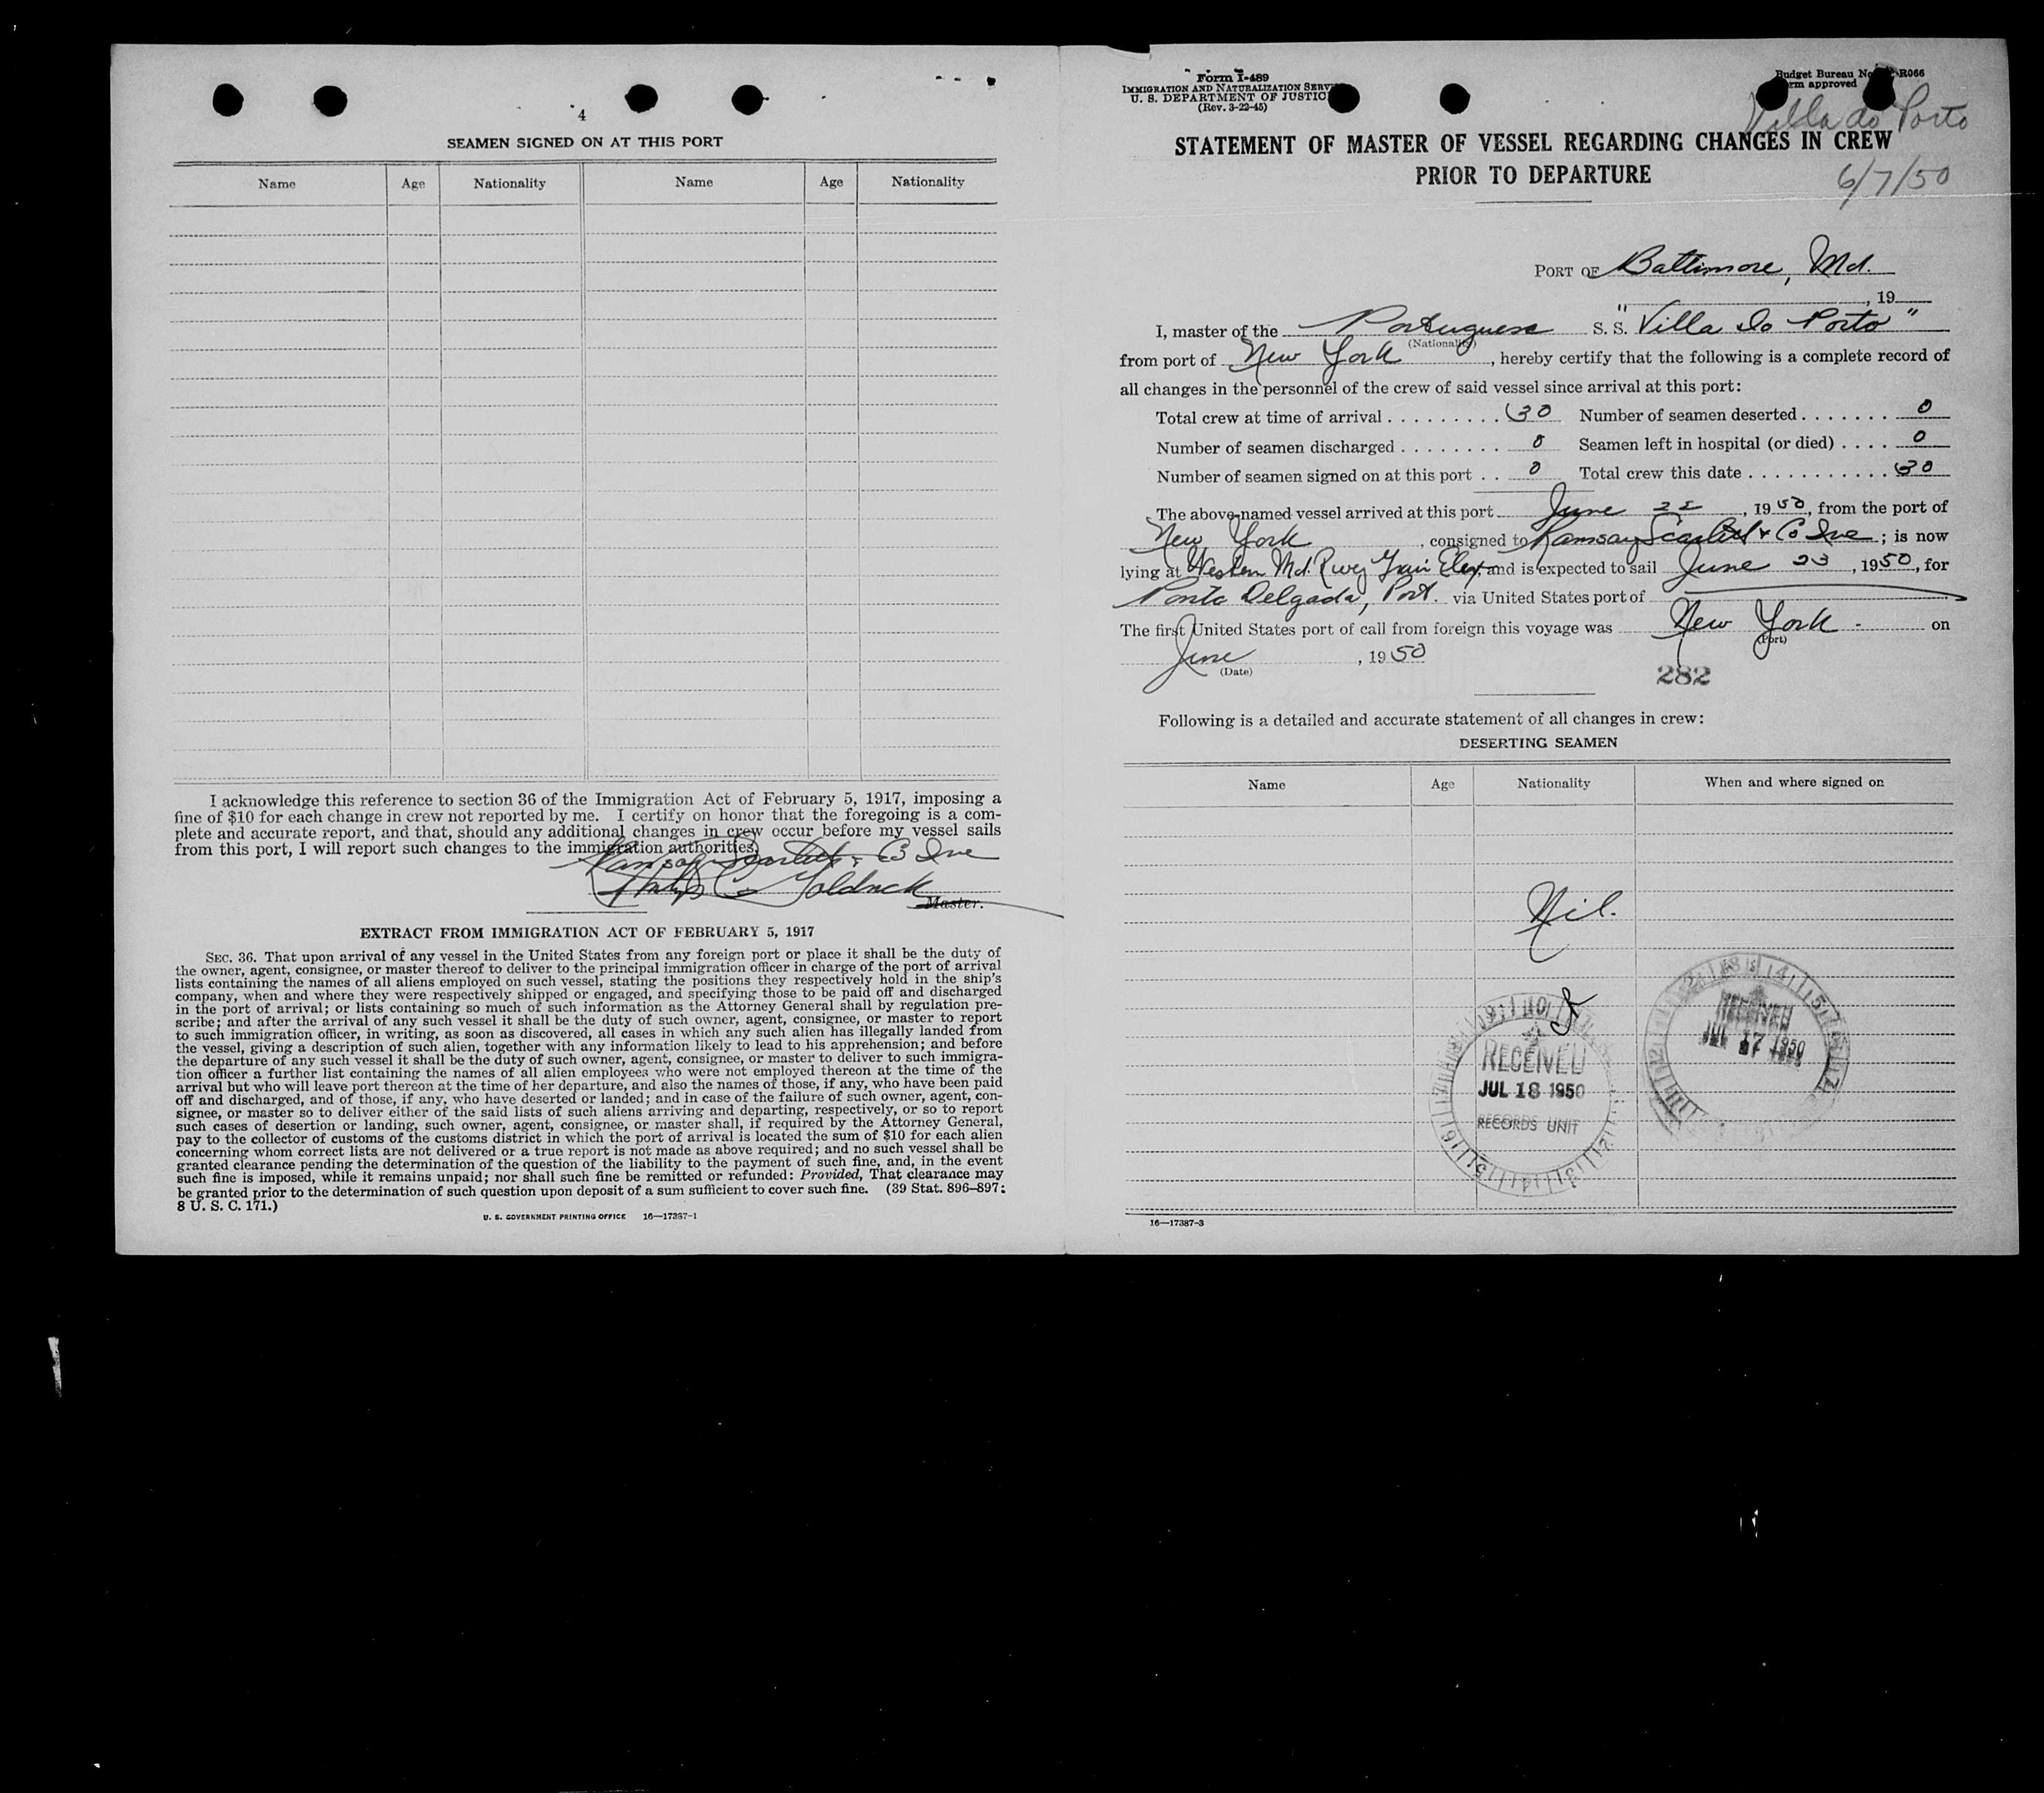 4
SEAMEN SIGNED ON AT THIS PORT
Name Age Nationality Name Age Nationality
I acknowledge this reference to section 36 of the Immigration Act of February 5, 1917, imposing a
fine of $10 for each change in crew not reported by me. I certify on honor that the foregoing is a com-
plete and accurate report, and that, should any additional changes in crew occur before my vessel sails
from this port, I will report such changes to the immigration authorities.
Ramsay Scarlett & Co Inc
Goldrick
Master.
EXTRACT FROM IMMIGRATION ACT OF FEBRUARY 5, 1917
SEC. 36. That upon arrival of any vessel in the United States from any foreign port or place it shall be the duty of
the owner, agent, consignee, or master thereof to deliver to the principal immigration officer in charge of the port of arrival
lists containing the names of all aliens employed on such vessel, stating the positions they respectively hold in the ship's
company, when and where they were respectively shipped or engaged, and specifying those to be paid off and discharged
in the port of arrival; or lists containing so much of such information as the Attorney General shall by regulation pre-
scribe; and after the arrival of any such vessel it shall be the duty of such owner, agent, consignee, or master to report
to such immigration officer, in writing, as soon as discovered, all cases in which any such alien has illegally landed from
the vessel, giving a description of such alien, together with any information likely to lead to his apprehension; and before
the departure of any such vessel it shall be the duty of such owner, agent, consignee, or master to deliver to such immigra-
tion officer a further list containing the names of all alien employees who were not employed thereon at the time of the
arrival but who will leave port thereon at the time of her departure, and also the names of those, if any, who have been paid
off and discharged, and of those, if any, who have deserted or landed; and in case of the failure of such owner, agent, con-
signee, or master so to deliver either of the said lists of such aliens arriving and departing, respectively, or so to report
such cases of desertion or landing, such owner, agent, consignee, or master shall, if required by the Attorney General,
pay to the collector of customs of the customs district in which the port of arrival is located the sum of $10 for each alien
concerning whom correct lists are not delivered or a true report is not made as above required; and no such vessel shall be
granted clearance pending the determination of the question of the liability to the payment of such fine, and, in the event
such fine is imposed, while it remains unpaid; nor shall such fine be remitted or refunded: Provided, That clearance may
be granted prior to the determination of such question upon deposit of a sum sufficient to cover such fine. (39 Stat. 896-897;
8 U. S. C. 171.)
U. S. GOVERNMENT PRINTING OFFICE 16—17387-1
Form I-489
IMMIGRATION AND NATURALIZATION SERV
U. S. DEPARTMENT OF JUSTIC
(Rev. 3-22-45)
Budget Bureau No. R066
rm approved
Villa do Porto
STATEMENT OF MASTER OF VESSEL REGARDING CHANGES IN CREW
PRIOR TO DEPARTURE
6/7/50
PORT OF Baltimore, Md.
, 19
I, master of the Portuguese S. S. "Villa do Porto"
(Nationality)
from port of New York, hereby certify that the following is a complete record of
all changes in the personnel of the crew of said vessel since arrival at this port:
Total crew at time of arrival . . . . . . . . . 30 Number of seamen deserted . . . . . . . 0
Number of seamen discharged . . . . . . . . 0 Seamen left in hospital (or died) . . . . 0
Number of seamen signed on at this port . . 0 Total crew this date . . . . . . . . . . . 30
The above-named vessel arrived at this port June 22, 1950, from the port of
New York, consigned to Ramsay Scarlett & Co Inc; is now
lying at Western Md. Rwy Grain Elev, and is expected to sail June 23, 1950, for
Ponta Delgada, Port. via United States port of
The first United States port of call from foreign this voyage was New York - on
(Port)
June, 1950
(Date)
282
Following is a detailed and accurate statement of all changes in crew:
DESERTING SEAMEN
Name Age Nationality When and where signed on
Nil.
RECEIVED
JUL 18 1950
RECORDS UNIT
RECEIVED
JUL 17 1950
16—17387-3